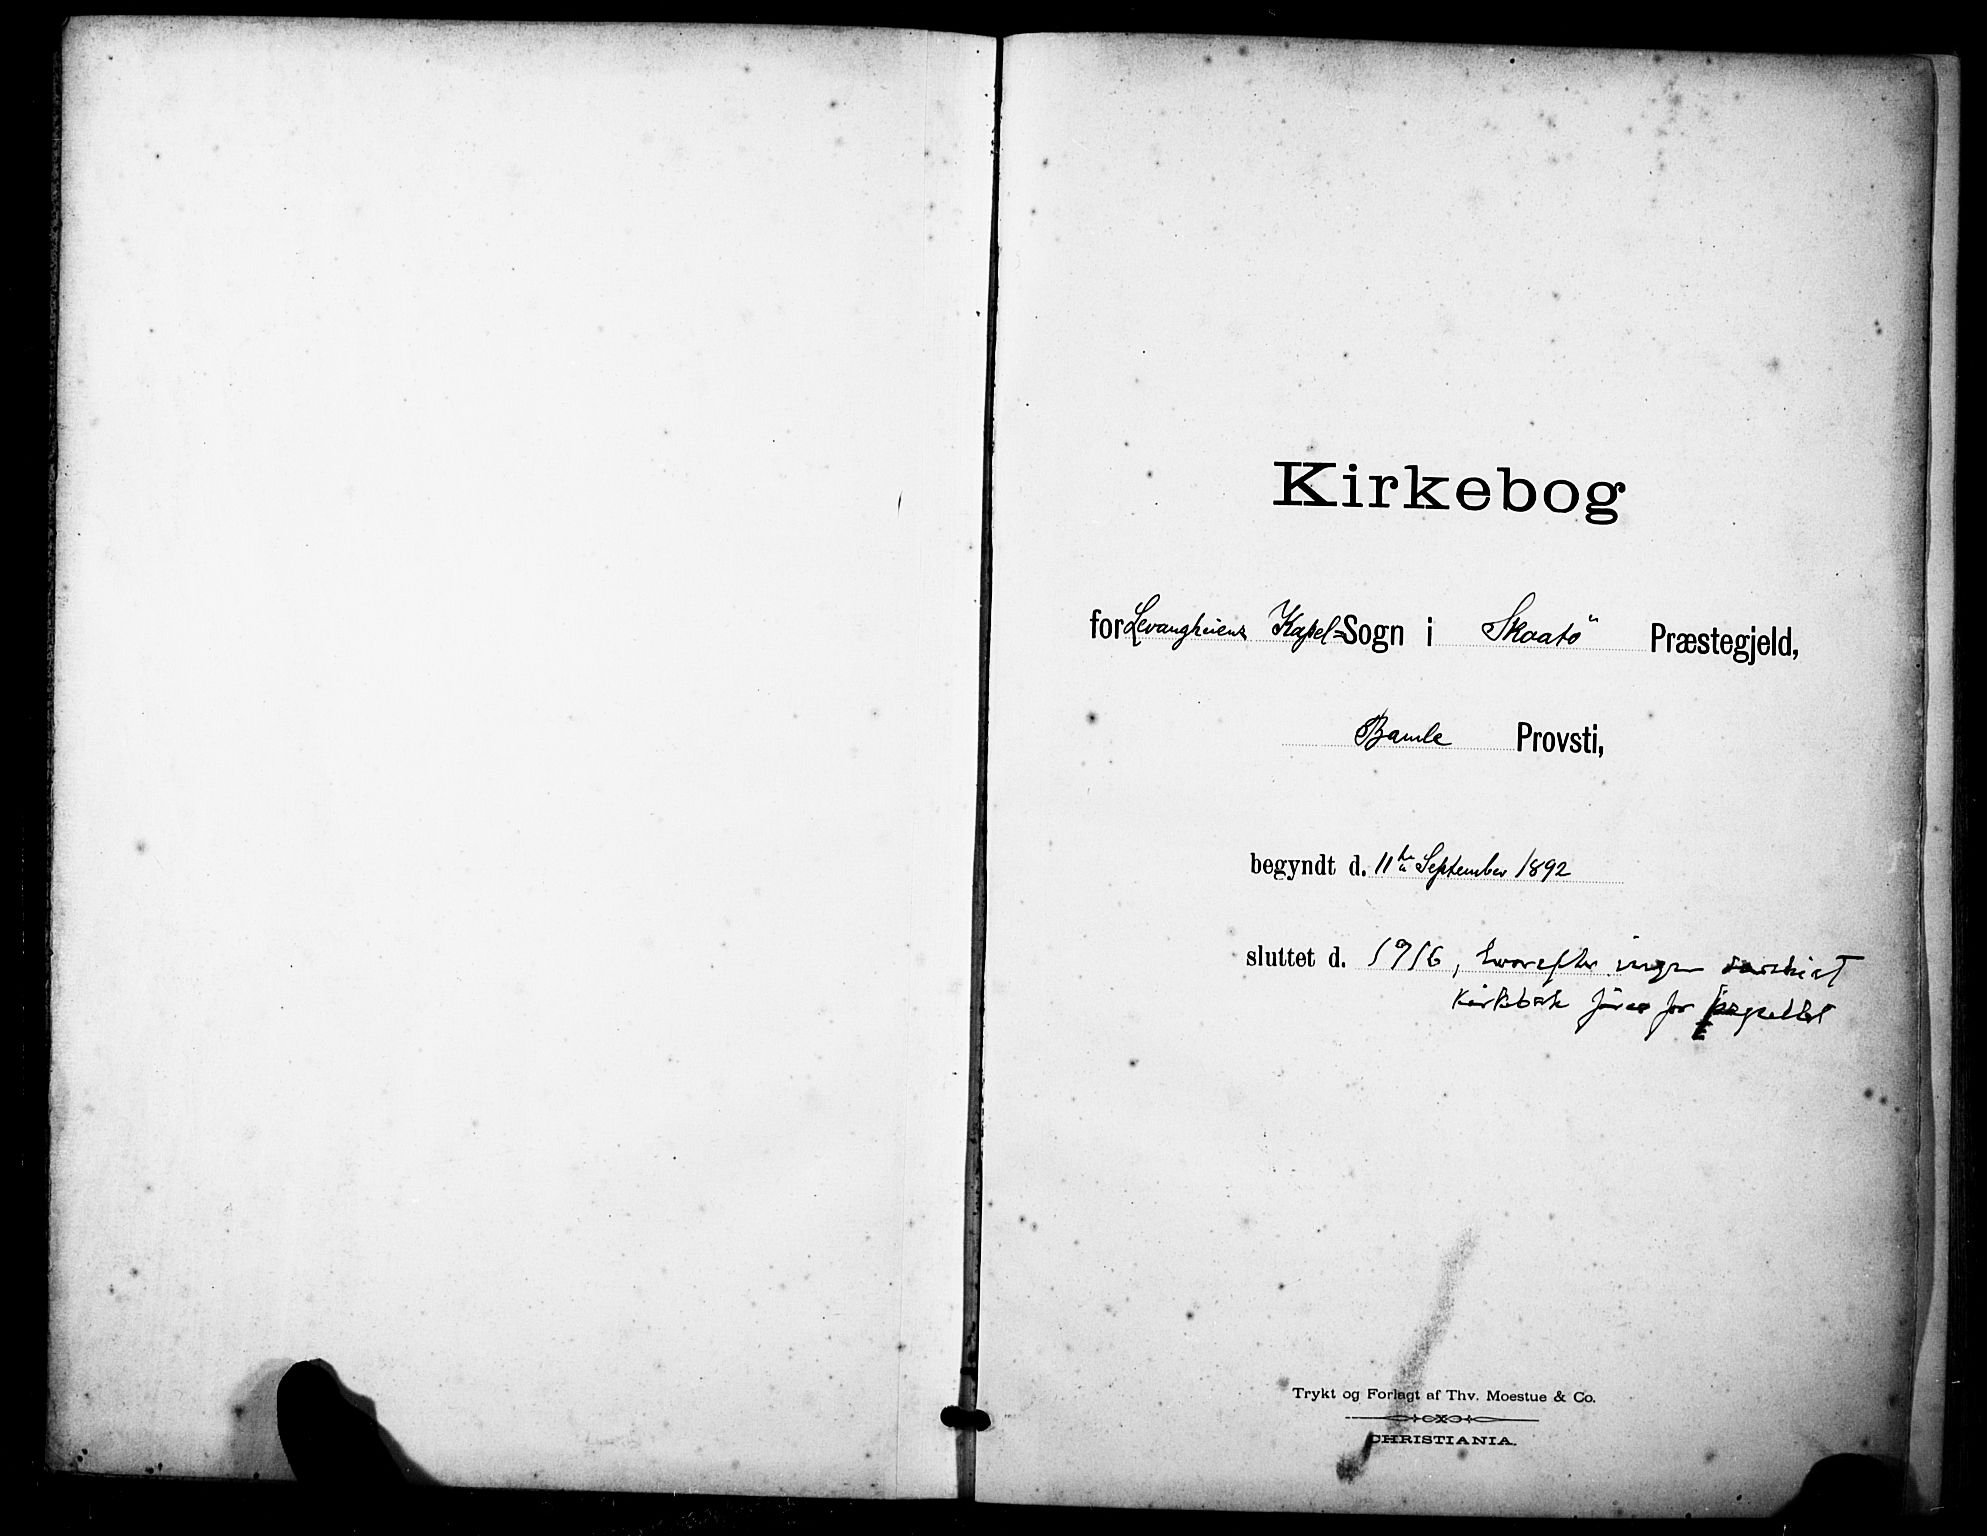 Kirkebog
for Levangheiens Kapel=Sogn i Skaatö Præstegjeld,
Bamle Provsti,
begyndt d. 11te September 1892
sluttet d. 1916, hvorefter ingen særskilt
kirkebok føres for kapellet
Trykt og Forlagt af Thv. Moestue & Co.
CHRISTIANIA.